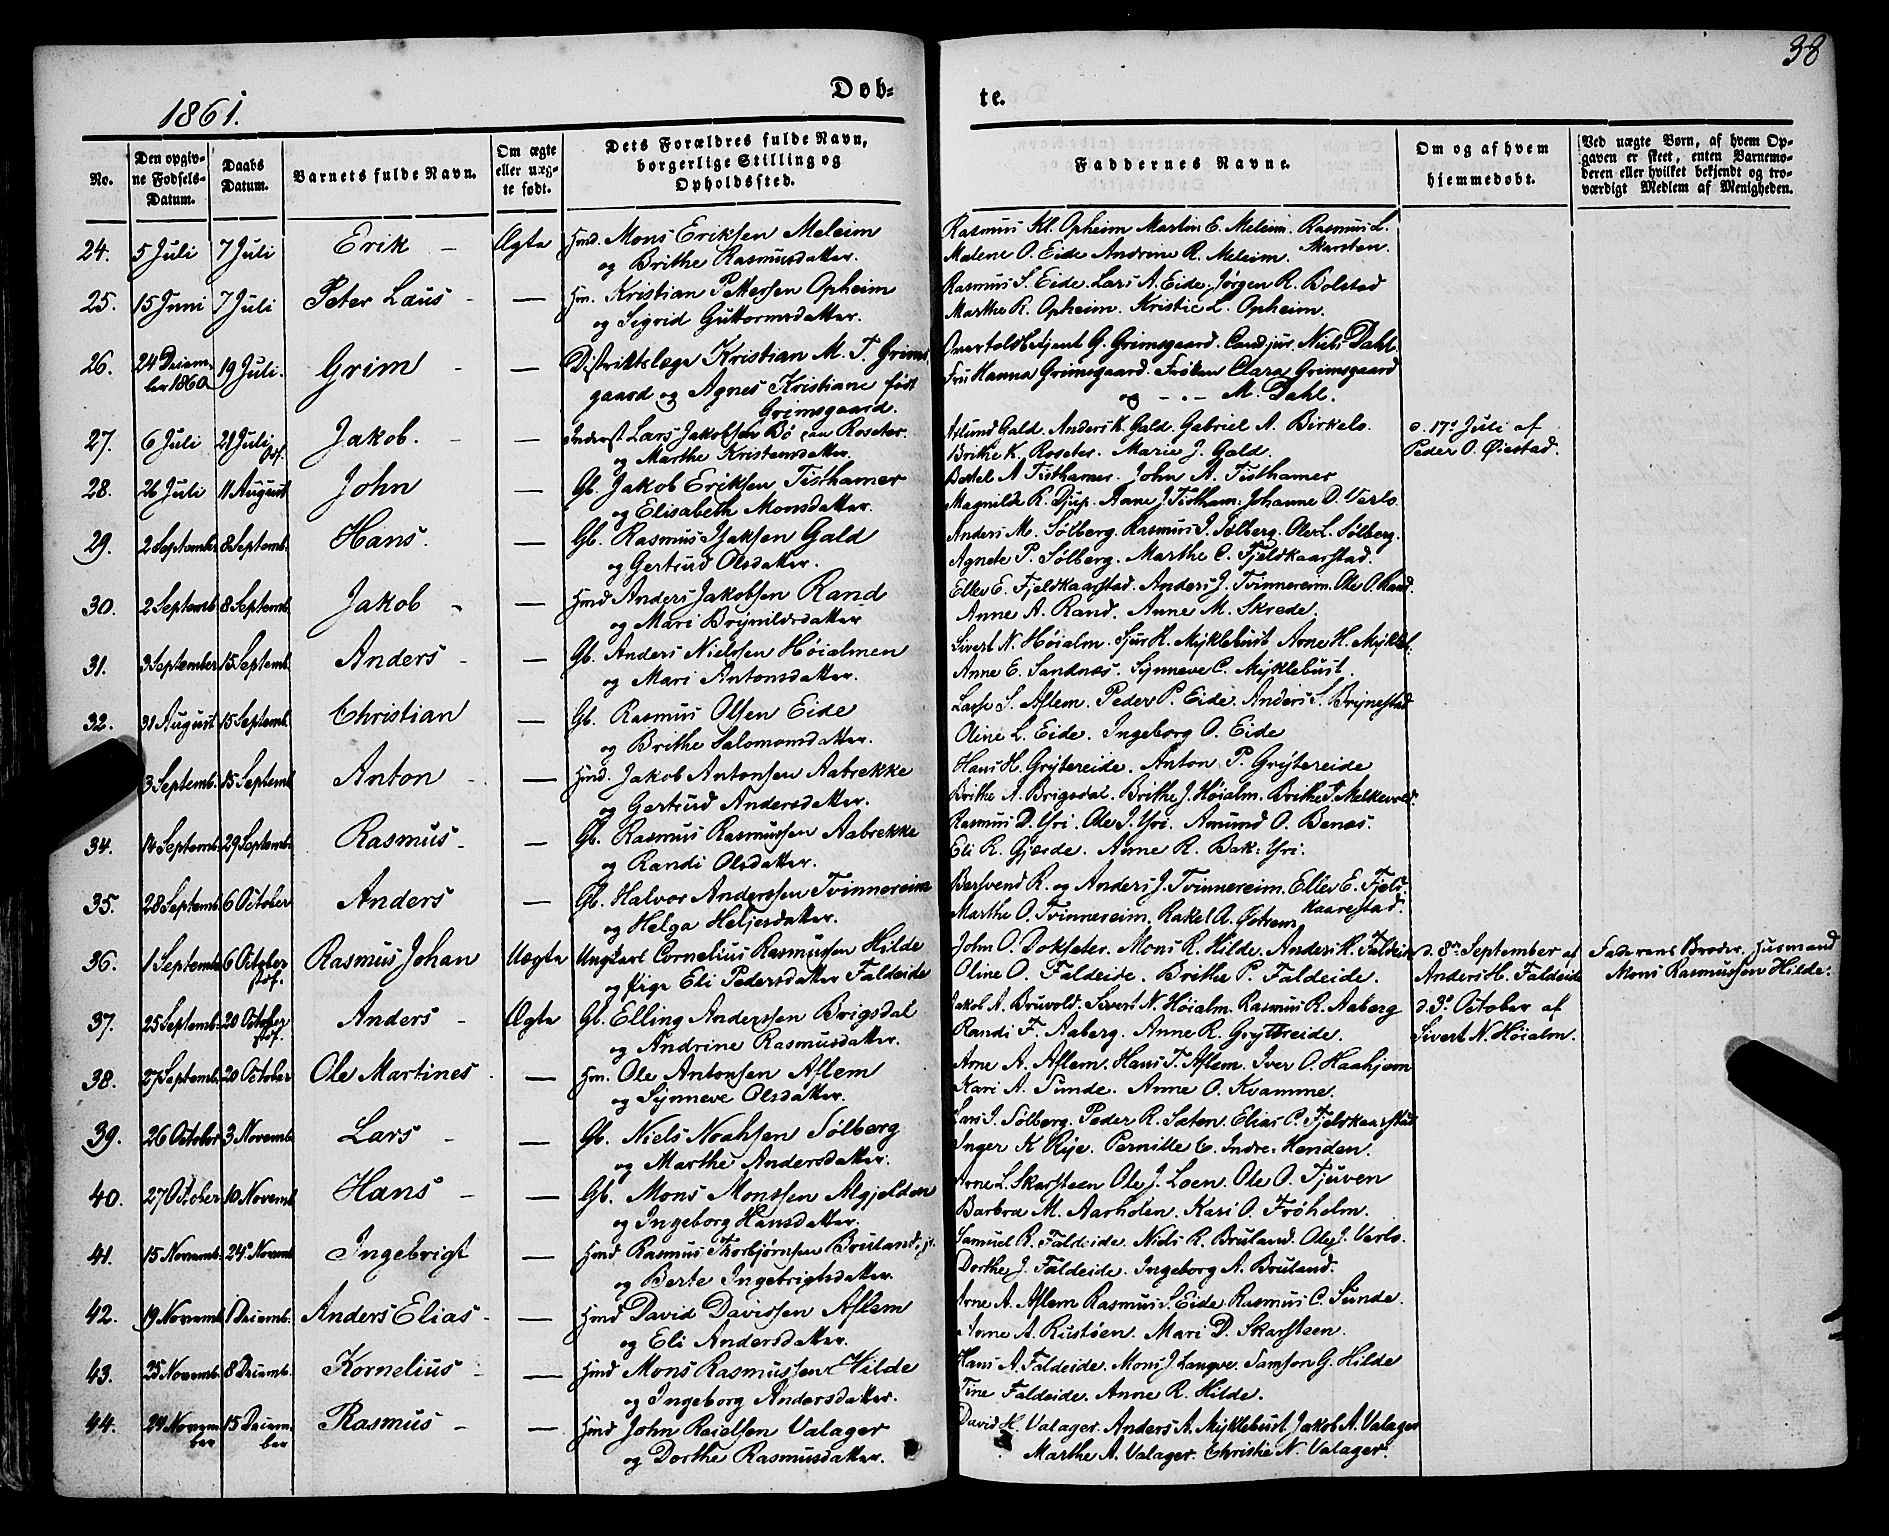 38
1861.
Døb-
te.
No.
Den opgiv-
ne Fødsels-
Datum.
Daabs
Datum.
Barnets fulde Navn.
Om ægte
eller uæg-
te født.
Dets Forældres fulde Navn,
borgerlige Stilling og
Opholdssted.
Faddernes Navne.
Om og af hvem
hjemmedøbt.
Ved uægte Børn, af hvem Op-
gaven er skeet, enten Barnemo-
deren eller hvilket bekjendt og tro-
værdigt Medlem af Menigheden.
24. 5 Juli 7 Juli Erik - Ægte Hmd. Mons Eriksen Meleim Rasmus Kl. Opheim Martin E. Meleim. Rasmus L.
og Brithe Rasmusdatter. Malene O. Eide Andrine R. Meleim. Skarsten.
25. 15 Juni 7 Juli Peter Laus - — Hm. Kristian Pettersen Opheim Rasmus S. Eide. Lars A. Eide. Jørgen R. Bolstad
og Sigrid Guttormsdatter. Marthe R. Opheim. Kristie L. Opheim.
26. 24 Decem- 19 Juli. Grim - — Distriktslæge Kristian M. T. Grims- G. Grimsgaard. Cand jur. Niels Dahl.
ber 1860 gaard og Agnes Kristiane født Fru Hanna Grimsgaard. Frøken Clara Grimsgaard
Grimsgaard. og -.- M. Dahl.
27. 6 Juli 21 Juli Jakob. - — Inderst Lars Jakobsen Bø Roseter. Aslund Gald. Anders K. Gald. Gabriel A. Birkelo. d. 17d Juli af
stf. og Marthe Kristensdatter. Brithe K. Roseter. Marie J. Gald. Peder O. Øiestad.
28. 26 Juli 11 August John — Gb. Jakob Eriksen Tisthamer Bertel A Tisthamer. John A. Tisthamer
og Elisabeth Monsdatter. Magnilde R. Djup. Anne J. Tistham. Johanne D. Verlo.
29. 2 September 8 Septemb. Hans. — Gb. Rasmus Isaksen Gald Anders M. Sølberg. Rasmus I. Sølberg. Ole L. Sølberg.
og Gertrud Olsdatter. Agnete P. Sølberg. Marthe C. Fjeldkaarstad.
30. 2 Septemb. 8 Septemb. Jakob - — Hmd Anders Jakobsen Rand Ellev E. Fjeldkaarstad. Anders J. Tvinnereim. Ole O. Rand.
og Mari Brynildsdatter Anne A. Rand. Anne M. Skrede.
31. 3 September 15 Septemb. Anders - — Gb. Anders Nielsen Høialmen Sivert N. Høialm. Sjur R. Myklebust Arne H. Mykleb.
og Mari Antonsdatter. Anne E. Sandnæs. Synneve C. Myklebust.
32. 31 August 15 Septemb. Christian — Gb. Rasmus Olsen Eide Lasse S. Aflem. Peder P. Eide. Anders S. Brynestad
og Brithe Salomonsdatter. Oline L. Eide. Ingeborg O. Eide
3 Septemb. 15 Septemb Anton - — Hmd. Jakob Antonsen Aabrekke Hans H. Grytereide. Anton P. Grytereide
og Gertrud Andersdatter. Brithe A. Brigsdal. Brithe J. Høialm. Brithe J. Melkevold.
34. 14 Septemb. 29 Septemb. Rasmus - — Gb. Rasmus Rasmussen Aabrekke Rasmus D. Yri. Ole J. Yri. Amund O. Benæs.
og Randi Olsdatter. Eli R. Gjærde. Anne R. Bak-Yri.
35. 28 Septemb. 6 October Anders — Gb. Halvor Anderssen Tvinnereim Bersvend R. og Anders J. Tvinnereim. Ellev E. Fjeld-
og Helga Heljesdatter. Marthe O. Tvinnereim. Rakel A. Østrem. kaarestad.
36. 1 Septemb 6 October Rasmus Johan Uægte Ungkarl Cornelius Rasmussen Hilde John O. Dokseter. Mons R. Hilde. Anders H. Faldeide d. 8de September af Faderens Broder, Husmand
stf. og Pige Eli Pedersdatter Faldeide Oline O. Faldeide. Brithe P. Faldeide. Anders H. Faldeide Mons Rasmussen Hilde.
37. 25 Septemb. 20 October Anders - Ægte Gb. Elling Anderssen Brigsdal Jakob A. Bruvold. Sivert N. Høialm. Rasmus R. Aaberg d. 3d October af
stf. og Andrine Rasmusdatter. Randi F. Aaberg. Anne R. Grytereide. Sivert N. Høialm.
38. 27 Septemb. 20 October Ole Martines — Hm. Ole Antonsen Aflem Arne A. Aflem. Hans T. Aflem. Iver O. Haahjem
og Synneve Olsdatter. Kari A. Sunde. Anne O. Kvamme.
39. 26 October 3 Novemb. Lars - — Gb. Niels Noahsen Sølberg Lars I. Sølberg. Peder R. Sæten. Elias C. Fjeldkaarstad
og Marthe Andersdatter. Inger K Rye. Pernille C. Indre-Henden.
40. 27 October 10 Novemb Hans - — Gb. Mons Monssen Algjelden Arne L. Skarsteen Ole J. Loen. Ole O. Tjuven
og Ingeborg Hansdatter. Barbra M. Aarholen. Kari O. Frøholm.
41. 15 Novemb. 24d Novemb Ingebrigt — Hmd Rasmus Thorbjørnsen Bruland, Samuel R. Faldeide. Niels R. Bruland. Ole J. Verlo.
og Berte Ingebrigtsdatter. Dorthe J. Faldeide. Ingeborg A. Bruland.
42. 19 Novemb. 1 Decemb. Anders Elias - — Hmd David Davidsen Aflem Arne A. Aflem Rasmus S. Eide. Rasmus C. Sunde.
og Eli Andersdatter. Anne A. Rustøen. Mari D. Skarsteen.
43. 25 Novemb. 8 Decemb. Kornelius - — Hmd Mons Rasmussen Hilde Hans A. Faldeide. Mons J. Langve. Samson G. Hilde
og Ingeborg Andersdatter. Tine Faldeide. Anne R. Hilde.
44. 24 Novem- 15 Decem- Rasmus - — Hmd John Roielsen Valager David H. Valager. Anders A. Myklebust. Jakob A. Valager
ber ber og Dorthe Rasmusdatter. Marthe A. Valager. Christie N. Valager.